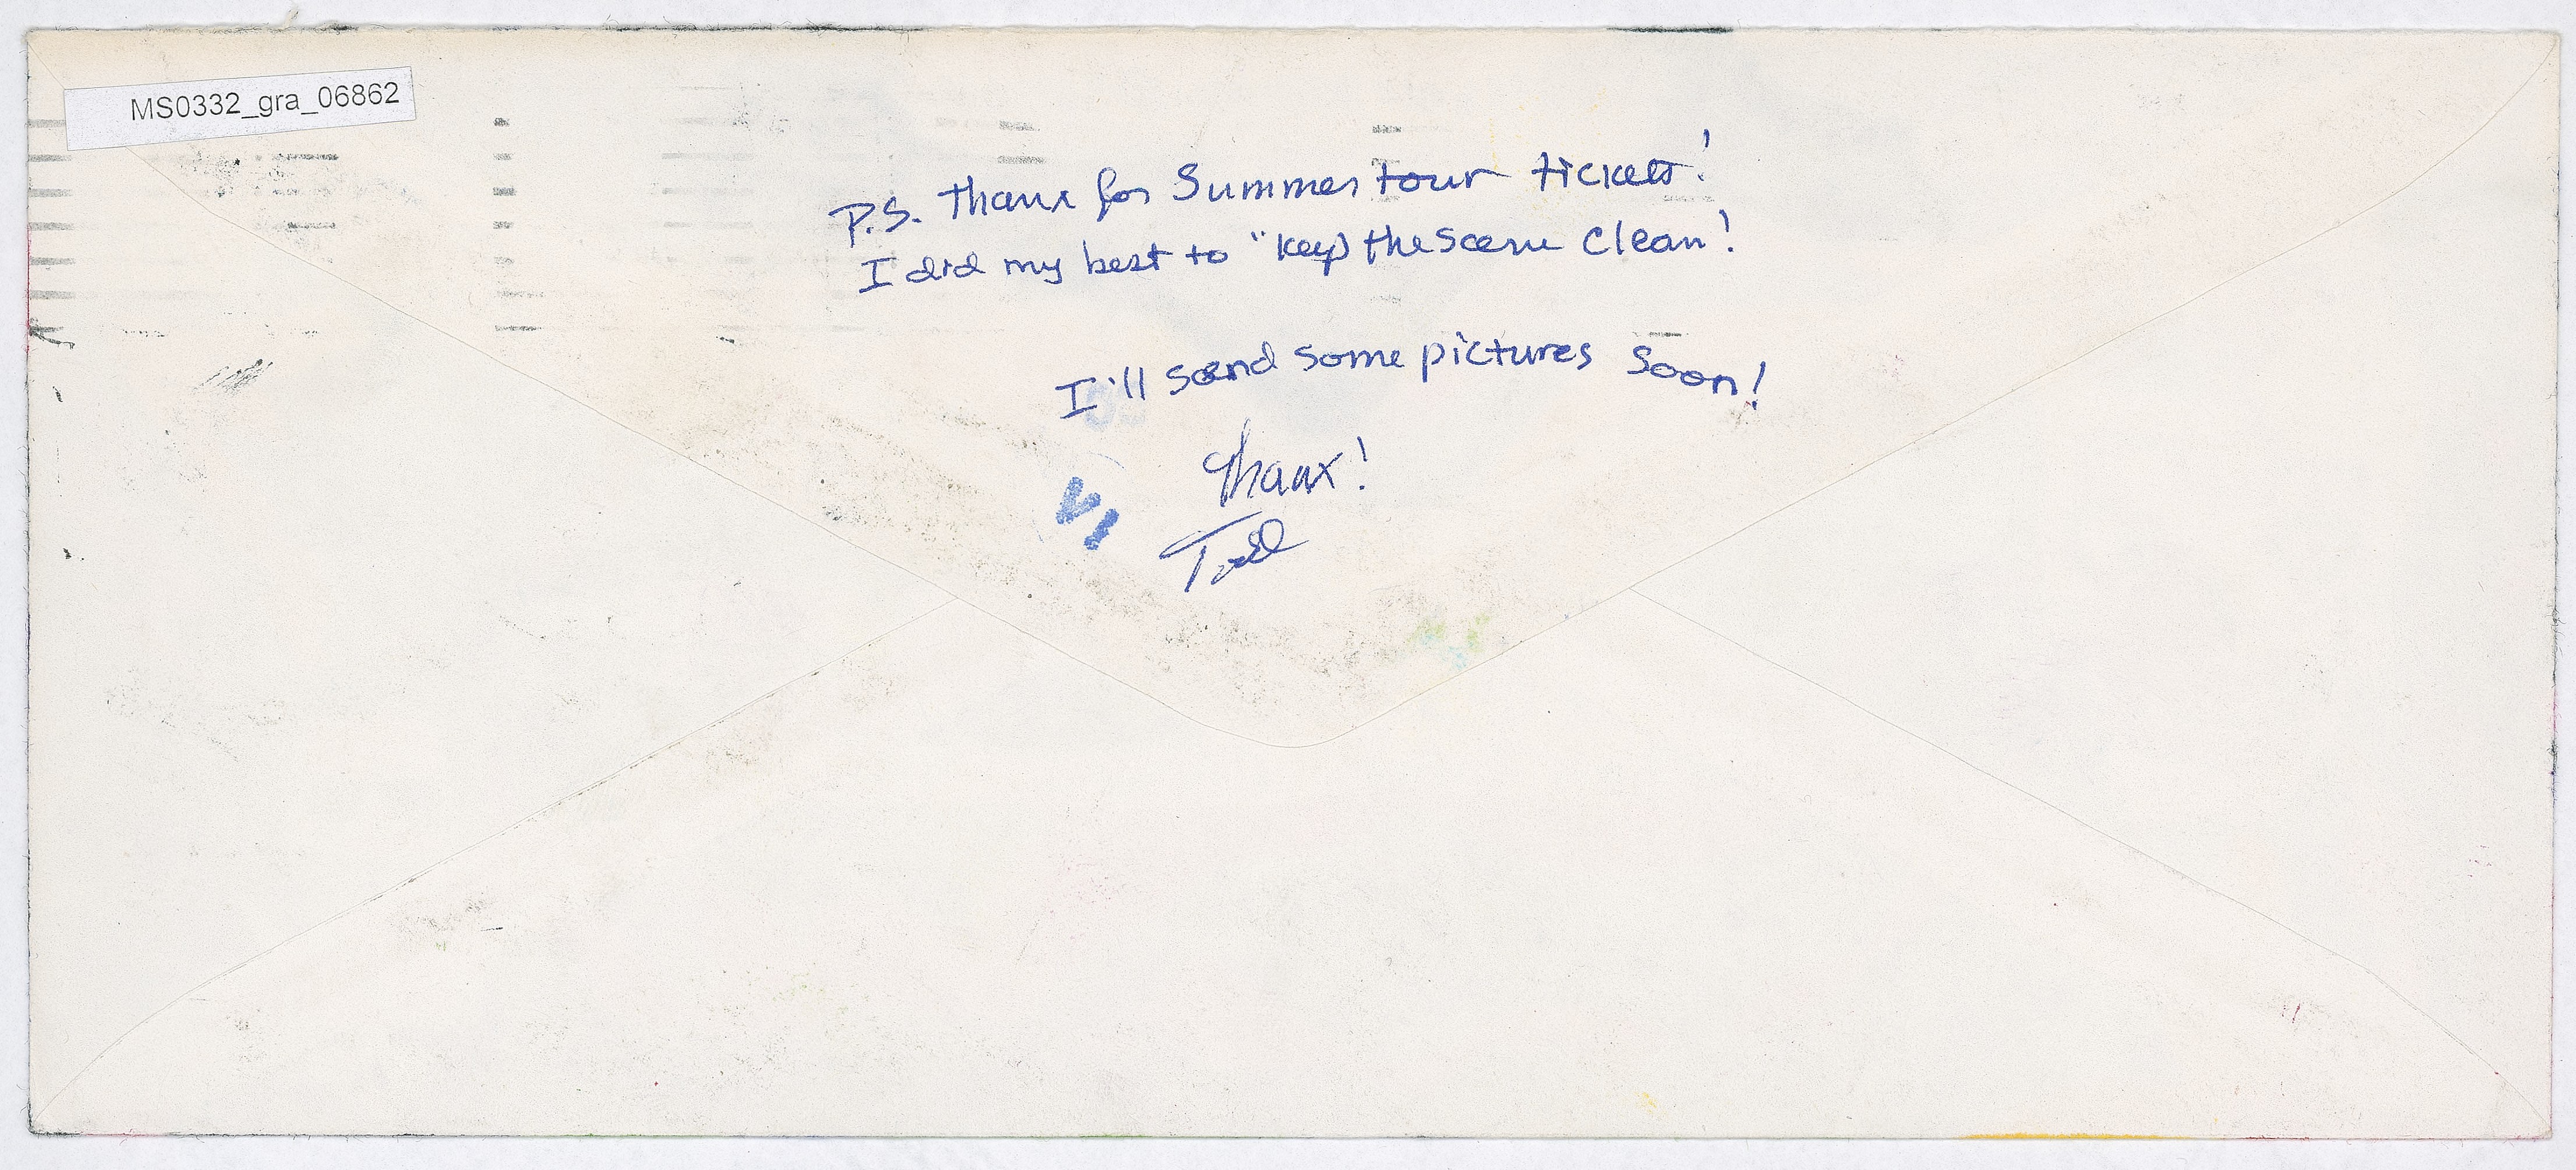 MS0332_gra_06862
P.S. Thanx for Summer tour tickets!
I did my best to "keep the scene clean!
I'll send some pictures soon!
Thanx!
VI